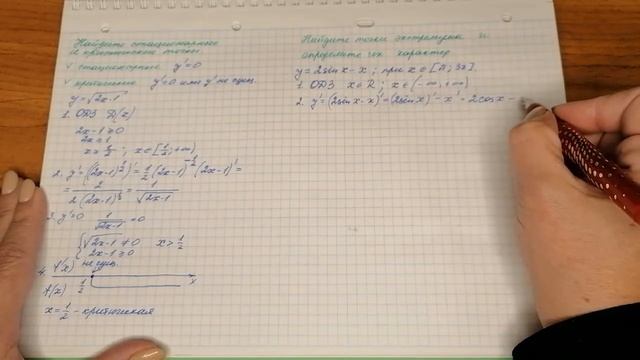 Найдите стационарные
и критические точки.
v стационарные y'=0
v критические y'=0 или y' не сущ.
y=√(2x-1)
1. ОДЗ D(x)
2x-1≥0
2x≥1
x≥1/2; x∈[1/2;+∞)
2. y'=((2x-1)^(1/2))'=1/2(2x-1)^(-1/2)(2x-1)'=
=2/(2(2x-1)^(1/2))=1/√(2x-1)
3. y'=0 1/√(2x-1)=0
{√(2x-1)≠0 x>1/2
2x-1≥0
4. f'(x) не сущ.
f(x) 1/2 x
x=1/2-критическая
Найдите точки экстремума и
определите их характер
y=2sinx-x; при x∈[π;3π]
1. ОДЗ x∈R; x∈(-∞;+∞)
2. y'=(2sinx-x)'=(2sinx)'-x'=2cosx-